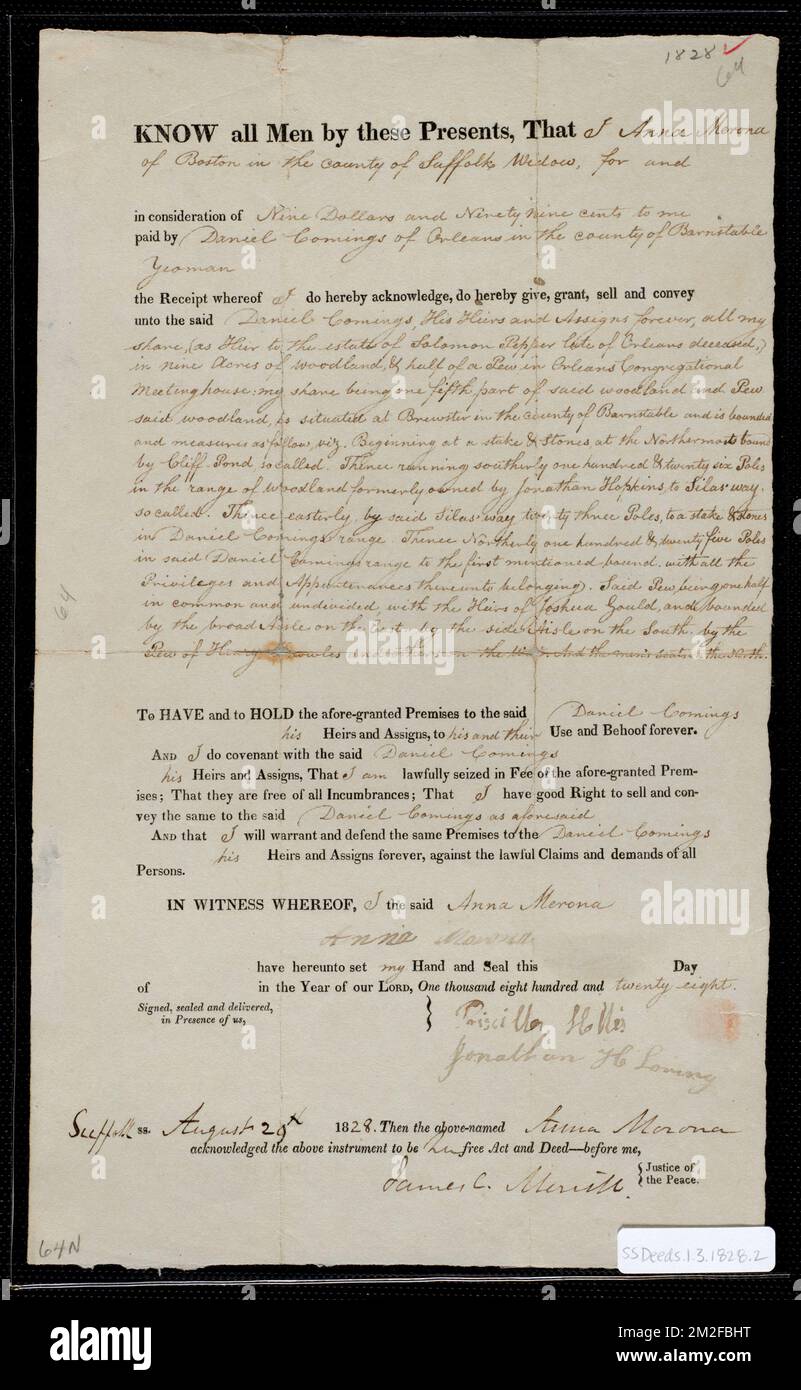 1828
64
KNOW all Men by these Presents, That I Anna Merona
of Boston in the county of Suffolk Widow, for and
in consideration of Nine Dollars and Ninety nine cents to me
paid by Daniel Comings of Orleans in the county of Barnstable
Yeoman
the Receipt whereof I do hereby acknowledge, do hereby give, grant, sell and convey
unto the said Daniel Comings, His Heirs and Assigns forever, all my
share, (as Heir to the estate of Solomon Pepper late of Orleans deceased,)
in nine Acres of woodland, & half of a Pew in Orleans Congregational
Meetinghouse: my share being one fifth part of said woodland and Pew
said woodland is situated at Brewster in the county of Barnstable and is bounded
and measures as follow, viz. Beginning at a stake & stones at the Northermost bound
by Cliff Pond so called. Thence running southerly one hundred & twenty six Poles
in the range of woodland formerly owned by Jonathan Hopkins, to Silas' way.
so called. Thence easterly, by said Silas' way twenty three Poles, to a stake & stones
in Daniel Comings range. Thence Northerly one hundred & twenty five Poles
in said Daniel Comings range to the first mentioned bound, with all the
Privileges and Appurtenances thereunto belonging). Said Pew being one half
in common and undivided, with the Heirs of Joshua Gould, and bounded
by the broad Aisle on the East by the side Aisle on the South. by the
Pew of and on the And the men's seats on the North.
64
To HAVE and to HOLD the afore-granted Premises to the said Daniel Comings
his Heirs and Assigns, to his and their Use and Behoof forever.
AND I do covenant with the said Daniel Comings
his Heirs and Assigns, That I am lawfully seized in Fee of the afore-granted Prem-
ises; That they are free of all Incumbrances; That I have good Right to sell and con-
vey the same to the said Daniel Comings as aforesaid
AND that I will warrant and defend the same Premises to the Daniel Comings
his Heirs and Assigns forever, against the lawful Claims and demands of all
Persons.
IN WITNESS WHEREOF, I the said Anna Merona
Anna Merona
have hereunto set my Hand and Seal this Day
of in the Year of our LORD, One thousand eight hundred and twenty eight.
Signed, sealed and delivered,
in Presence of us,
Priscilla Hollis
Jonathan H Loring
Suffolk ss. August 29th 1828. Then the above-named Anna Merona
acknowledged the above instrument to be her free Act and Deed—before me,
James C. Merrill. Justice of
the Peace.
64N
SSDeeds.1.3.1828.2
alamy
Image ID: 2M2FBHT
www.alamy.com